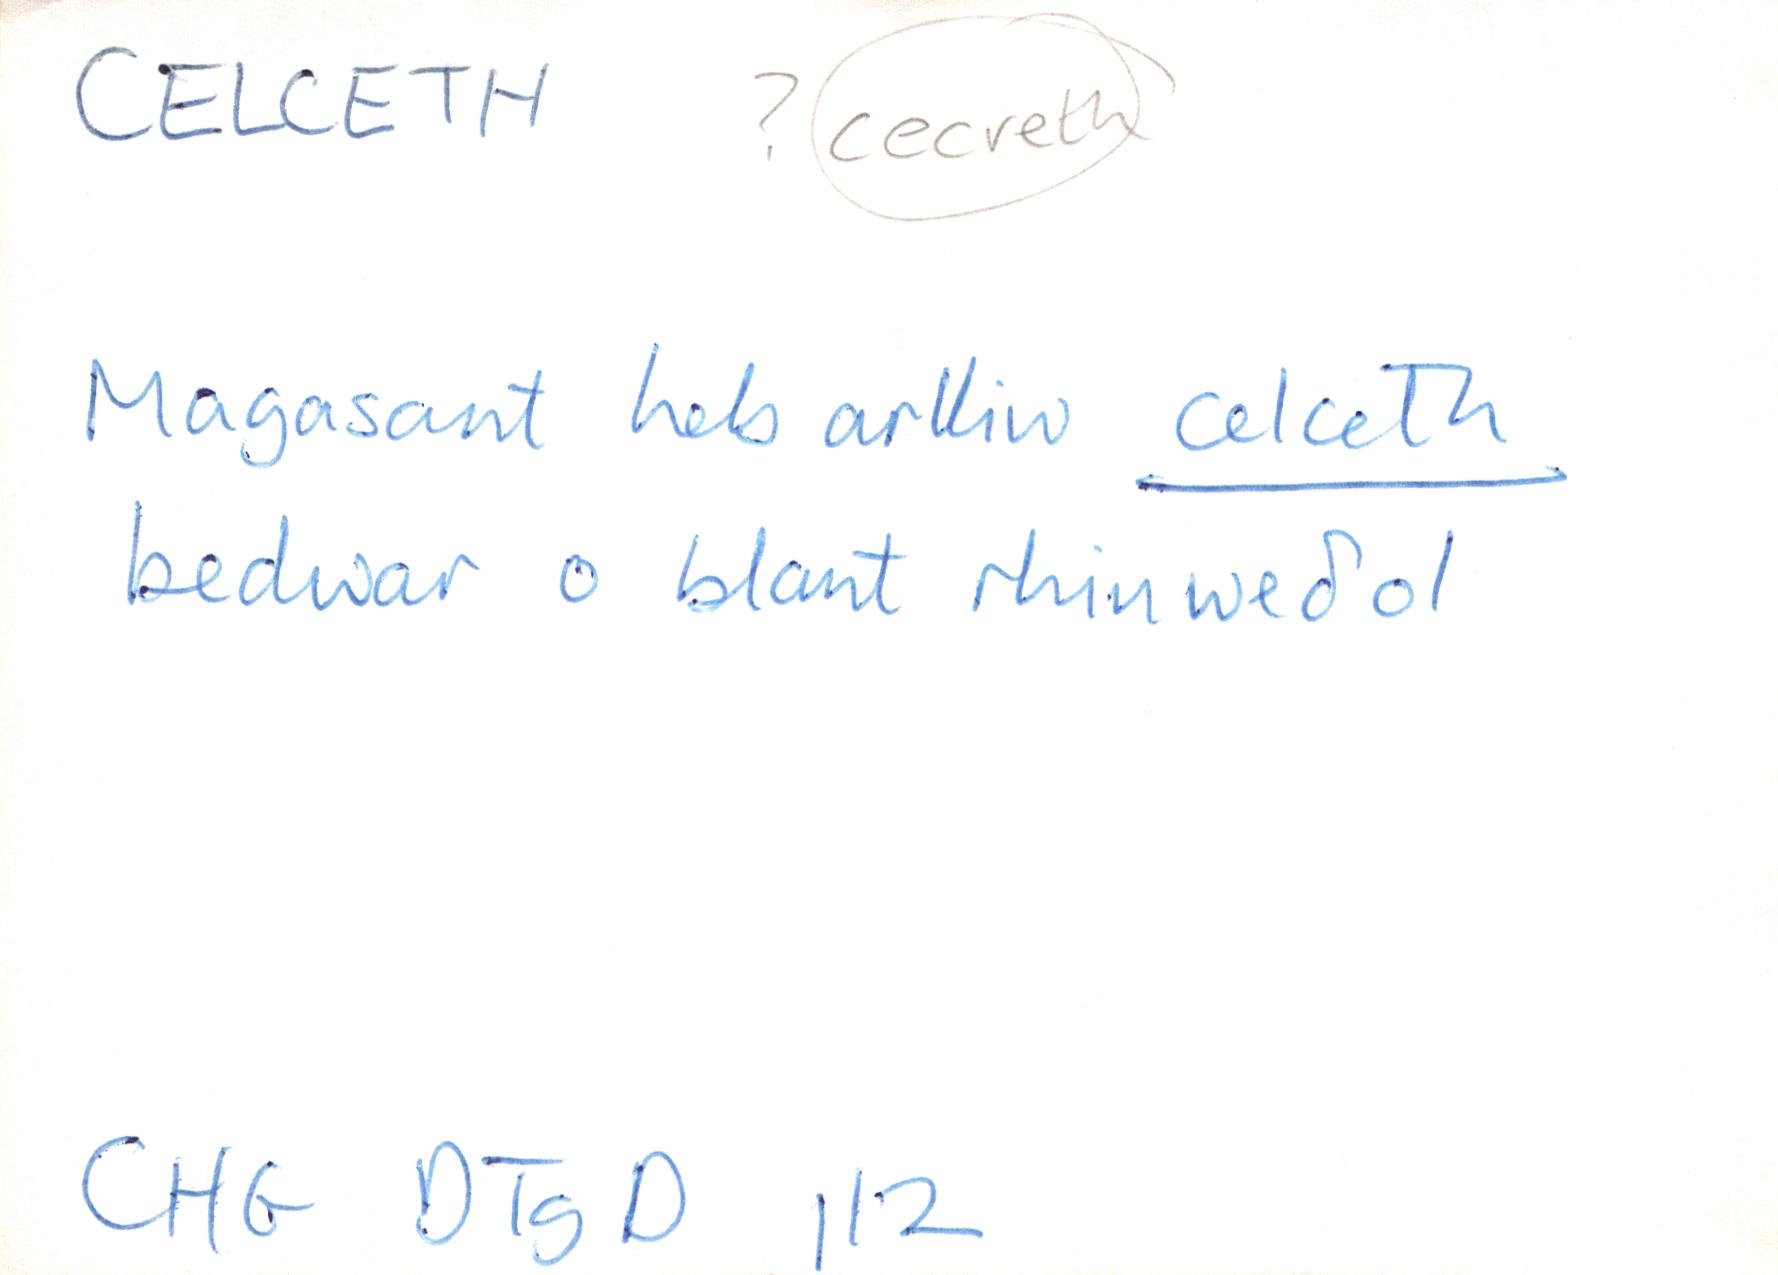 CELCETH ? cecreth
Magasant heb arlliw celceth
bedwar o blant rhinweδol
CHG DTgD 112